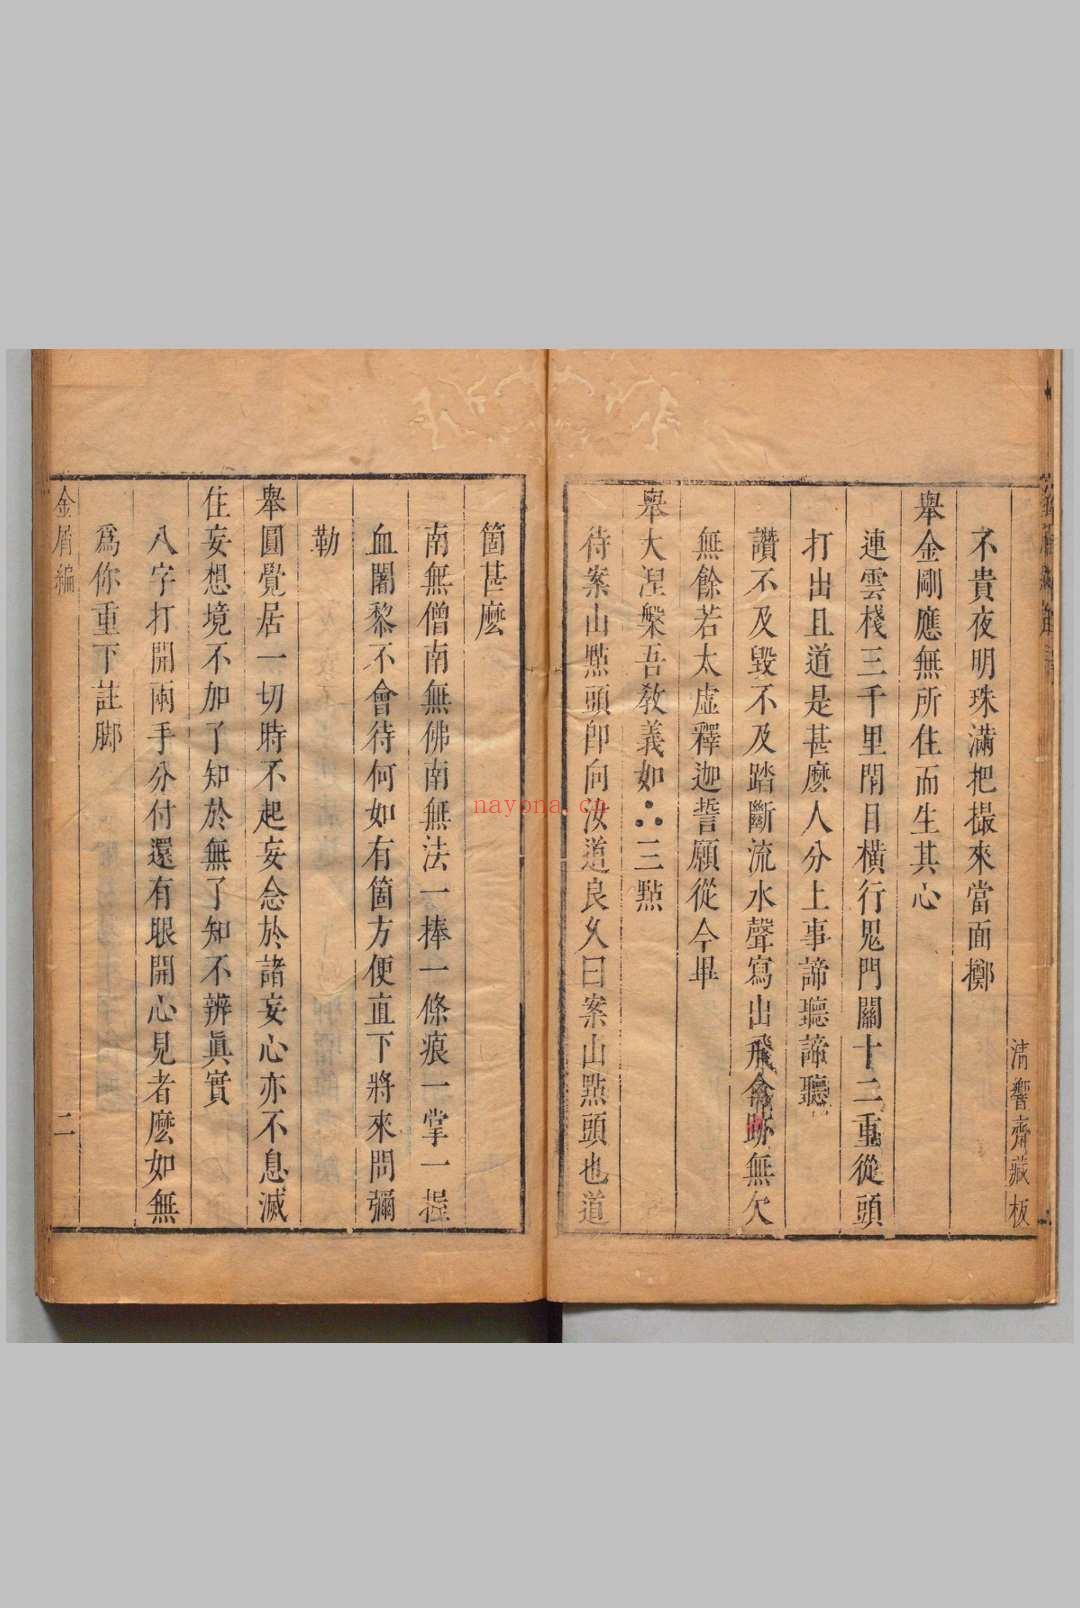 清響齋藏板
不貴夜明珠滿把撮來當面擲
舉金剛應無所住而生其心
連雲棧三千里閉目橫行鬼門關十二重從頭
打出且道是甚麼人分上事諦聽諦聽
讚不及毀不及踏斷流水聲寫出飛禽跡無欠
無餘若太虛釋迦誓願從今畢
舉大涅槃吾教義如∴三點
待案山點頭卽向汝道良久曰案山點頭也道
箇甚麼
南無僧南無佛南無法一棒一條痕一掌一握
血闍黎不會待何如有箇方便直下將來問彌
勒
舉圓覺居一切時不起妄念於諸妄心亦不息滅
住妄想境不加了知於無了知不辨眞實
八字打開兩手分付還有眼開心見者麼如無
爲你重下註脚
金屑編
二
nayona.cn